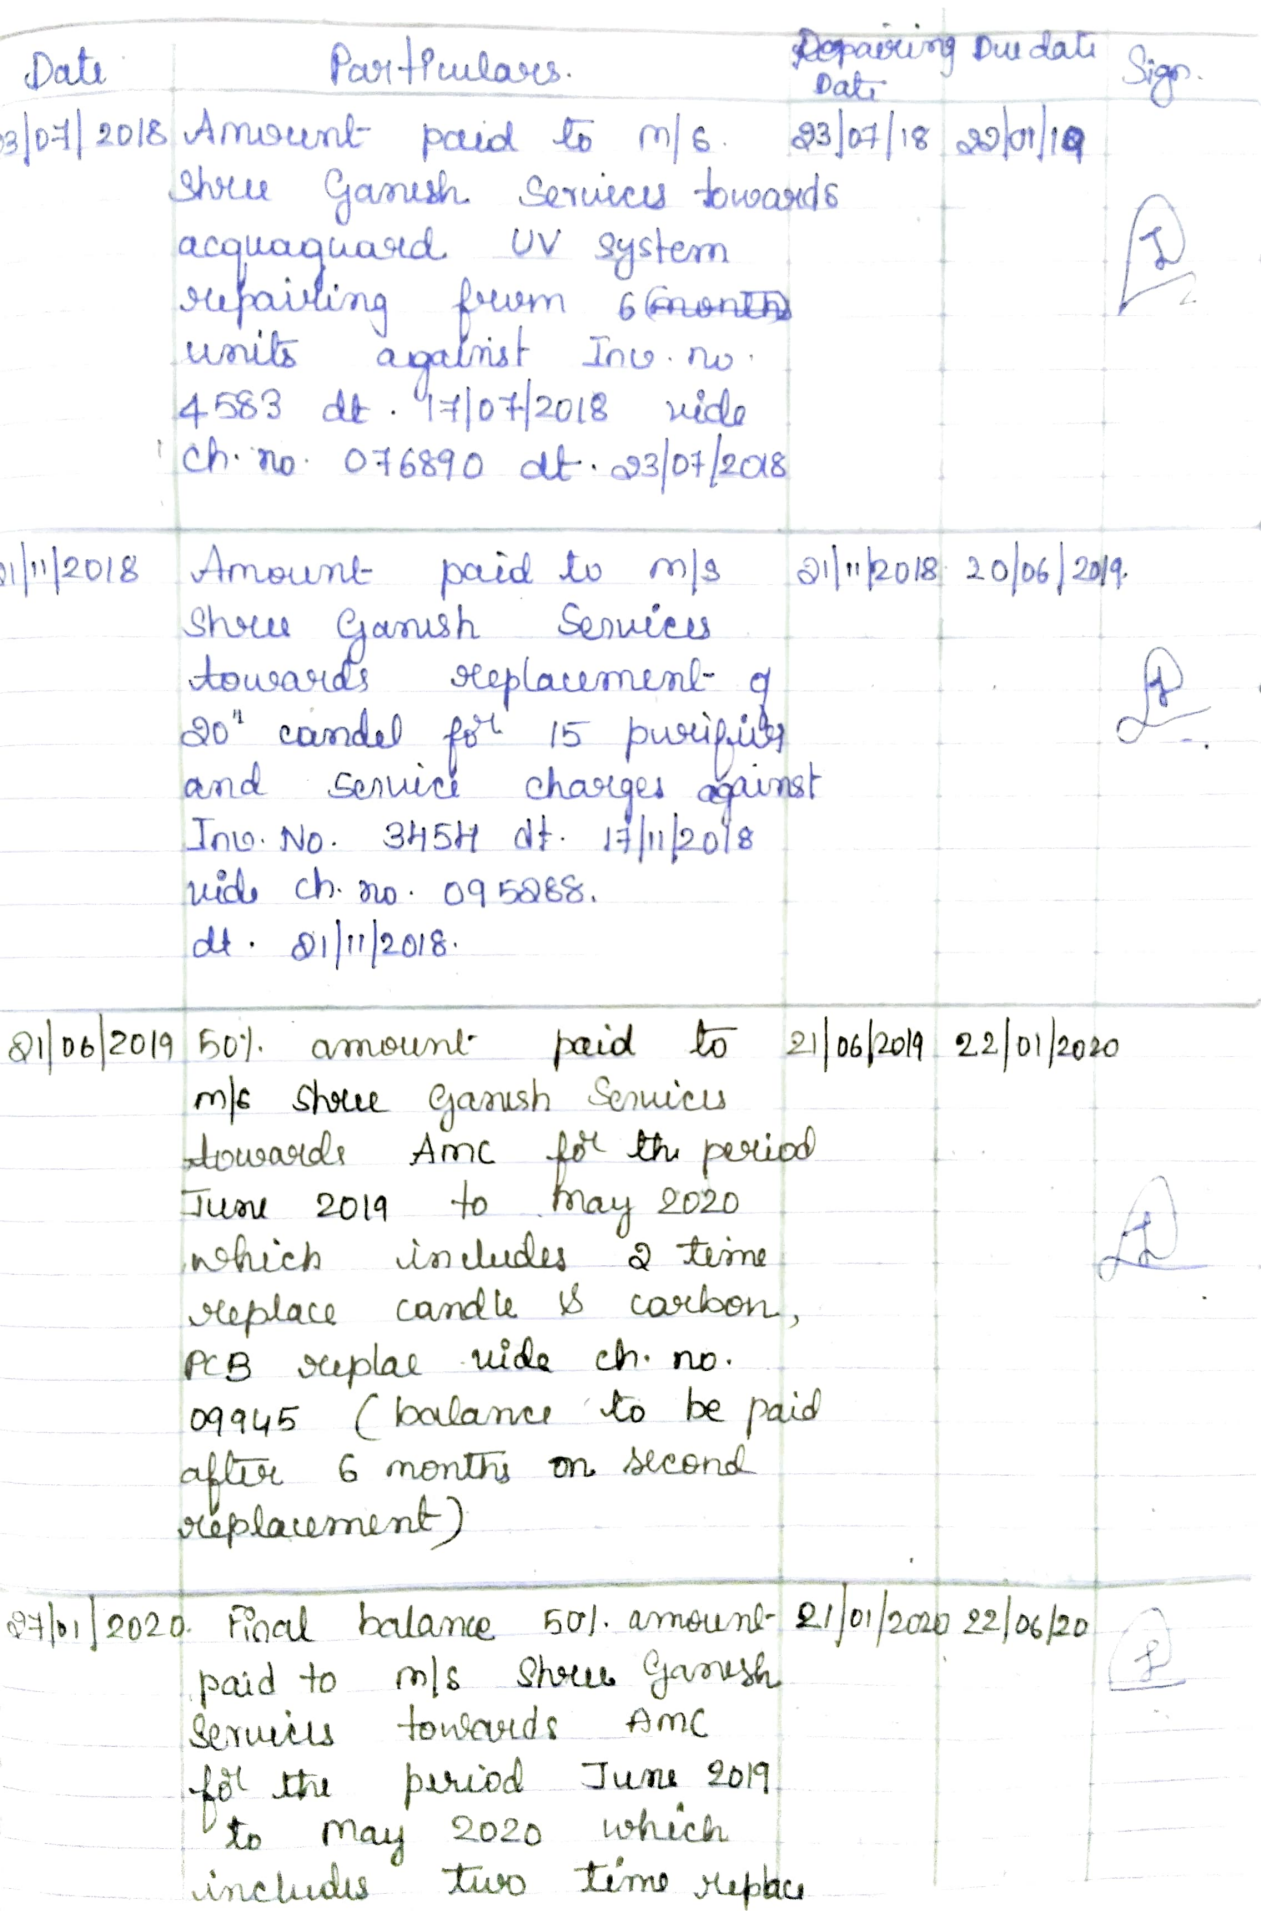 Date Particulars. Repairing Due date Sign.
Date
23/07/2018 Amount paid to M/s. 23/07/18 22/01/19
Shree Ganesh Services towards
acquaguard UV system
repairing from 6
units against Inv. no.
4583 dt. 17/07/2018 vide
ch. no. 076890 dt. 23/07/2018
21/11/2018 Amount paid to M/s 21/11/2018 20/06/2019.
Shree Ganesh Services
towards replacement of
20" candel for 15 purifier
and service charges against
Inv. No. 3454 dt. 17/11/2018
vide ch. no. 095288.
dt. 21/11/2018.
21/06/2019 50% amount paid to 21/06/2019 22/01/2020
M/s Shree Ganesh Services
towards AMC for the period
June 2019 to May 2020
which includes 2 time
replace candle & carbon,
PCB replac vide ch. no.
09945 (balance to be paid
after 6 months on second
replacement)
27/01/2020. Final balance 50% amount 21/01/2020 22/06/20
paid to M/s Shree Ganesh
Services towards AMC
for the period June 2019
to May 2020 which
includes two time replace